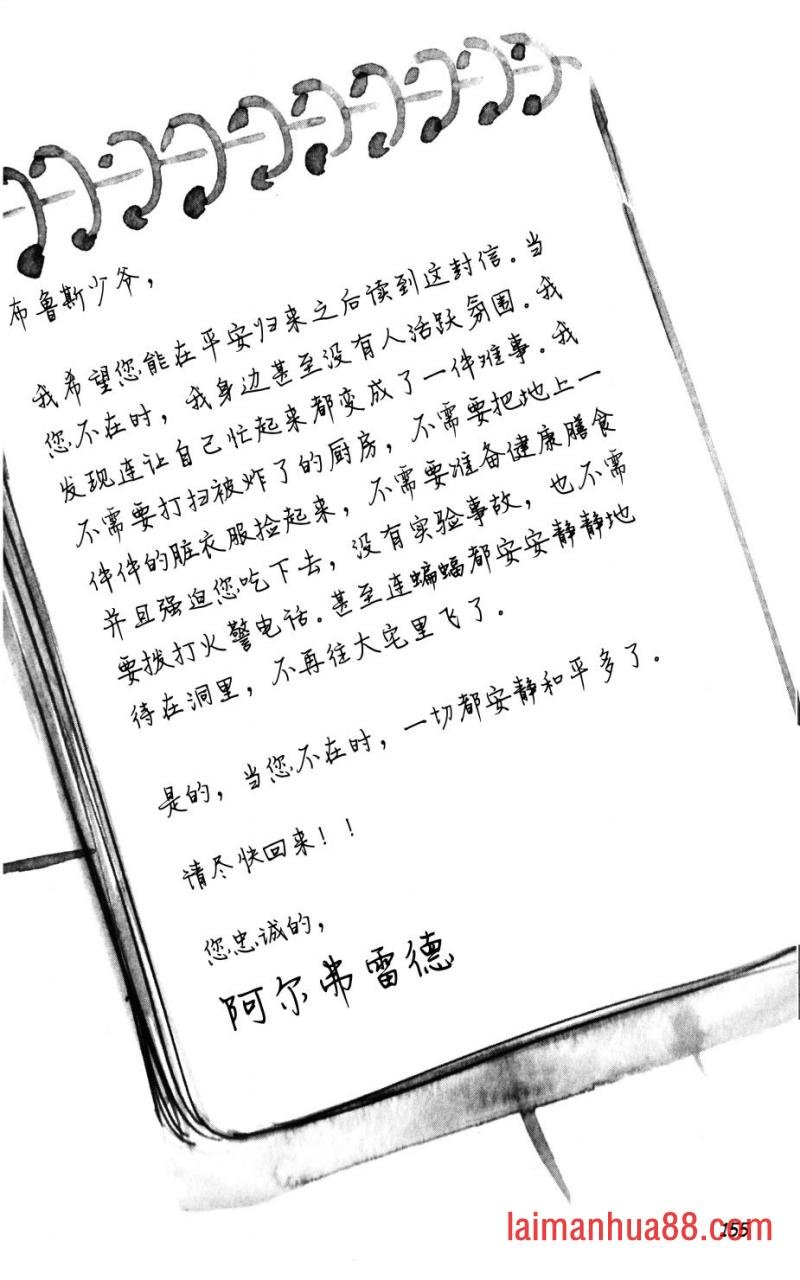 布鲁斯少爷，
我希望您能在平安归来之后读到这封信。当
您不在时，我身边甚至没有人活跃氛围。我
发现连让自己忙起来都变成了一件难事。我
不需要打扫被炸了的厨房，不需要把地上一
件件的脏衣服捡起来，不需要准备健康膳食
并且强迫您吃下去，没有实验事故，也不需
要拨打火警电话。甚至连蝙蝠都安安静静地
待在洞里，不再往大宅里飞了。
是的，当您不在时，一切都安静和平多了。
请尽快回来！！
您忠诚的，
阿尔弗雷德
155
laimanhua88.com